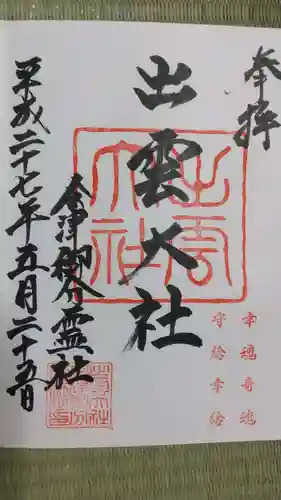 奉拝
出雲大社
幸魂奇魂
守給幸給
会津御分霊社
平成二十七年五月二十五日